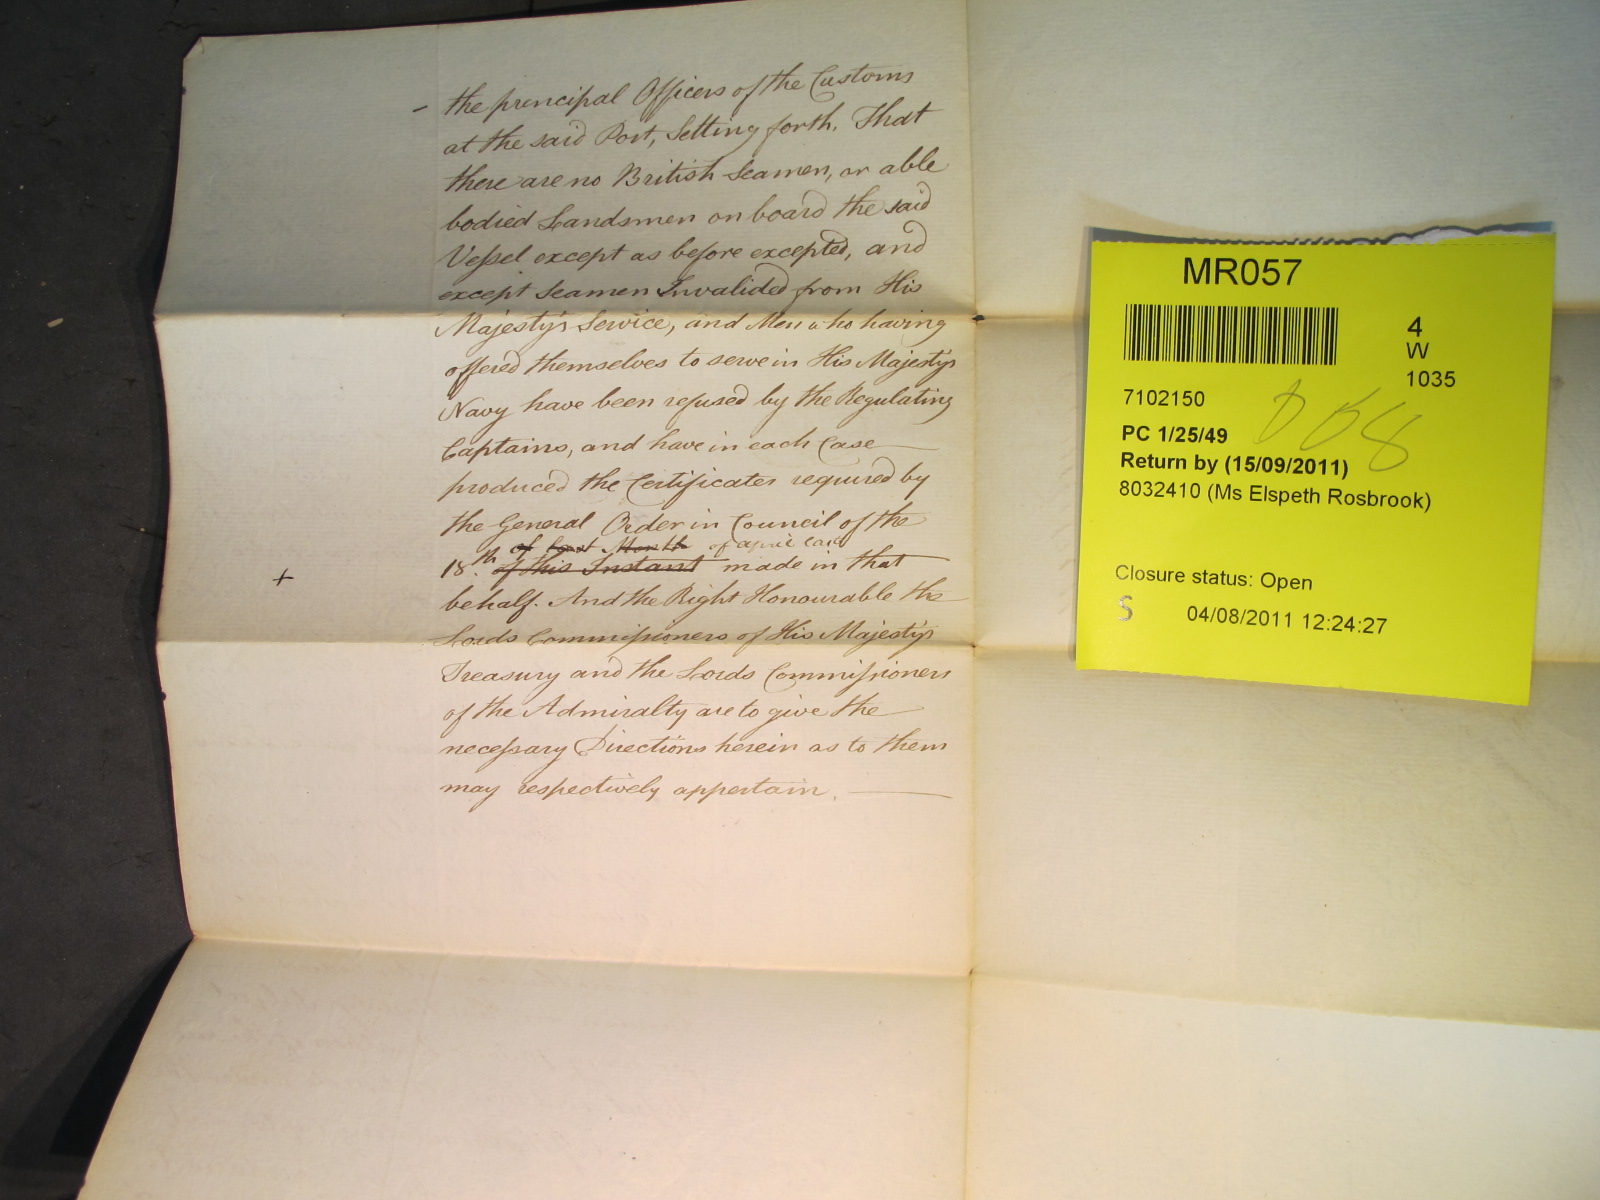 – the principal Officers of the Customs
at the said Port, Setting forth, That
there are no British Seamen, or able
bodied Landsmen on board the said
Vessel except as before excepted, and
except Seamen Invalided from His
Majesty's Service, and Men who having
offered themselves to serve in His Majesty's
Navy have been refused by the Regulating
Captains, and have in each Case
produced the Certificates required by
the General Order in Council of the
of last Month of April last
18th. of this Instant made in that
+
behalf. And the Right Honourable the
Lords Commissioners of His Majesty's
Treasury and the Lords Commissioners
of the Admiralty are to give the
necessary Directions herein as to them
may respectively appertain.
MR057
4
W
1035
7102150
PC 1/25/49
Return by (15/09/2011)
8032410 (Ms Elspeth Rosbrook)
Closure status: Open
S 04/08/2011 12:24:27